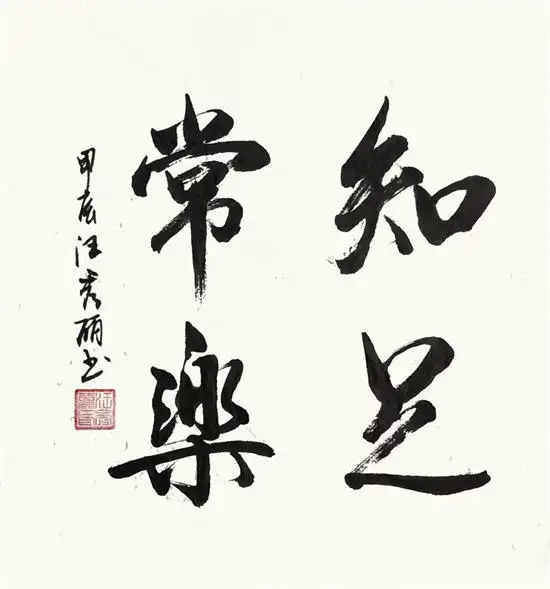 知足
常樂
甲辰汪秀麗书